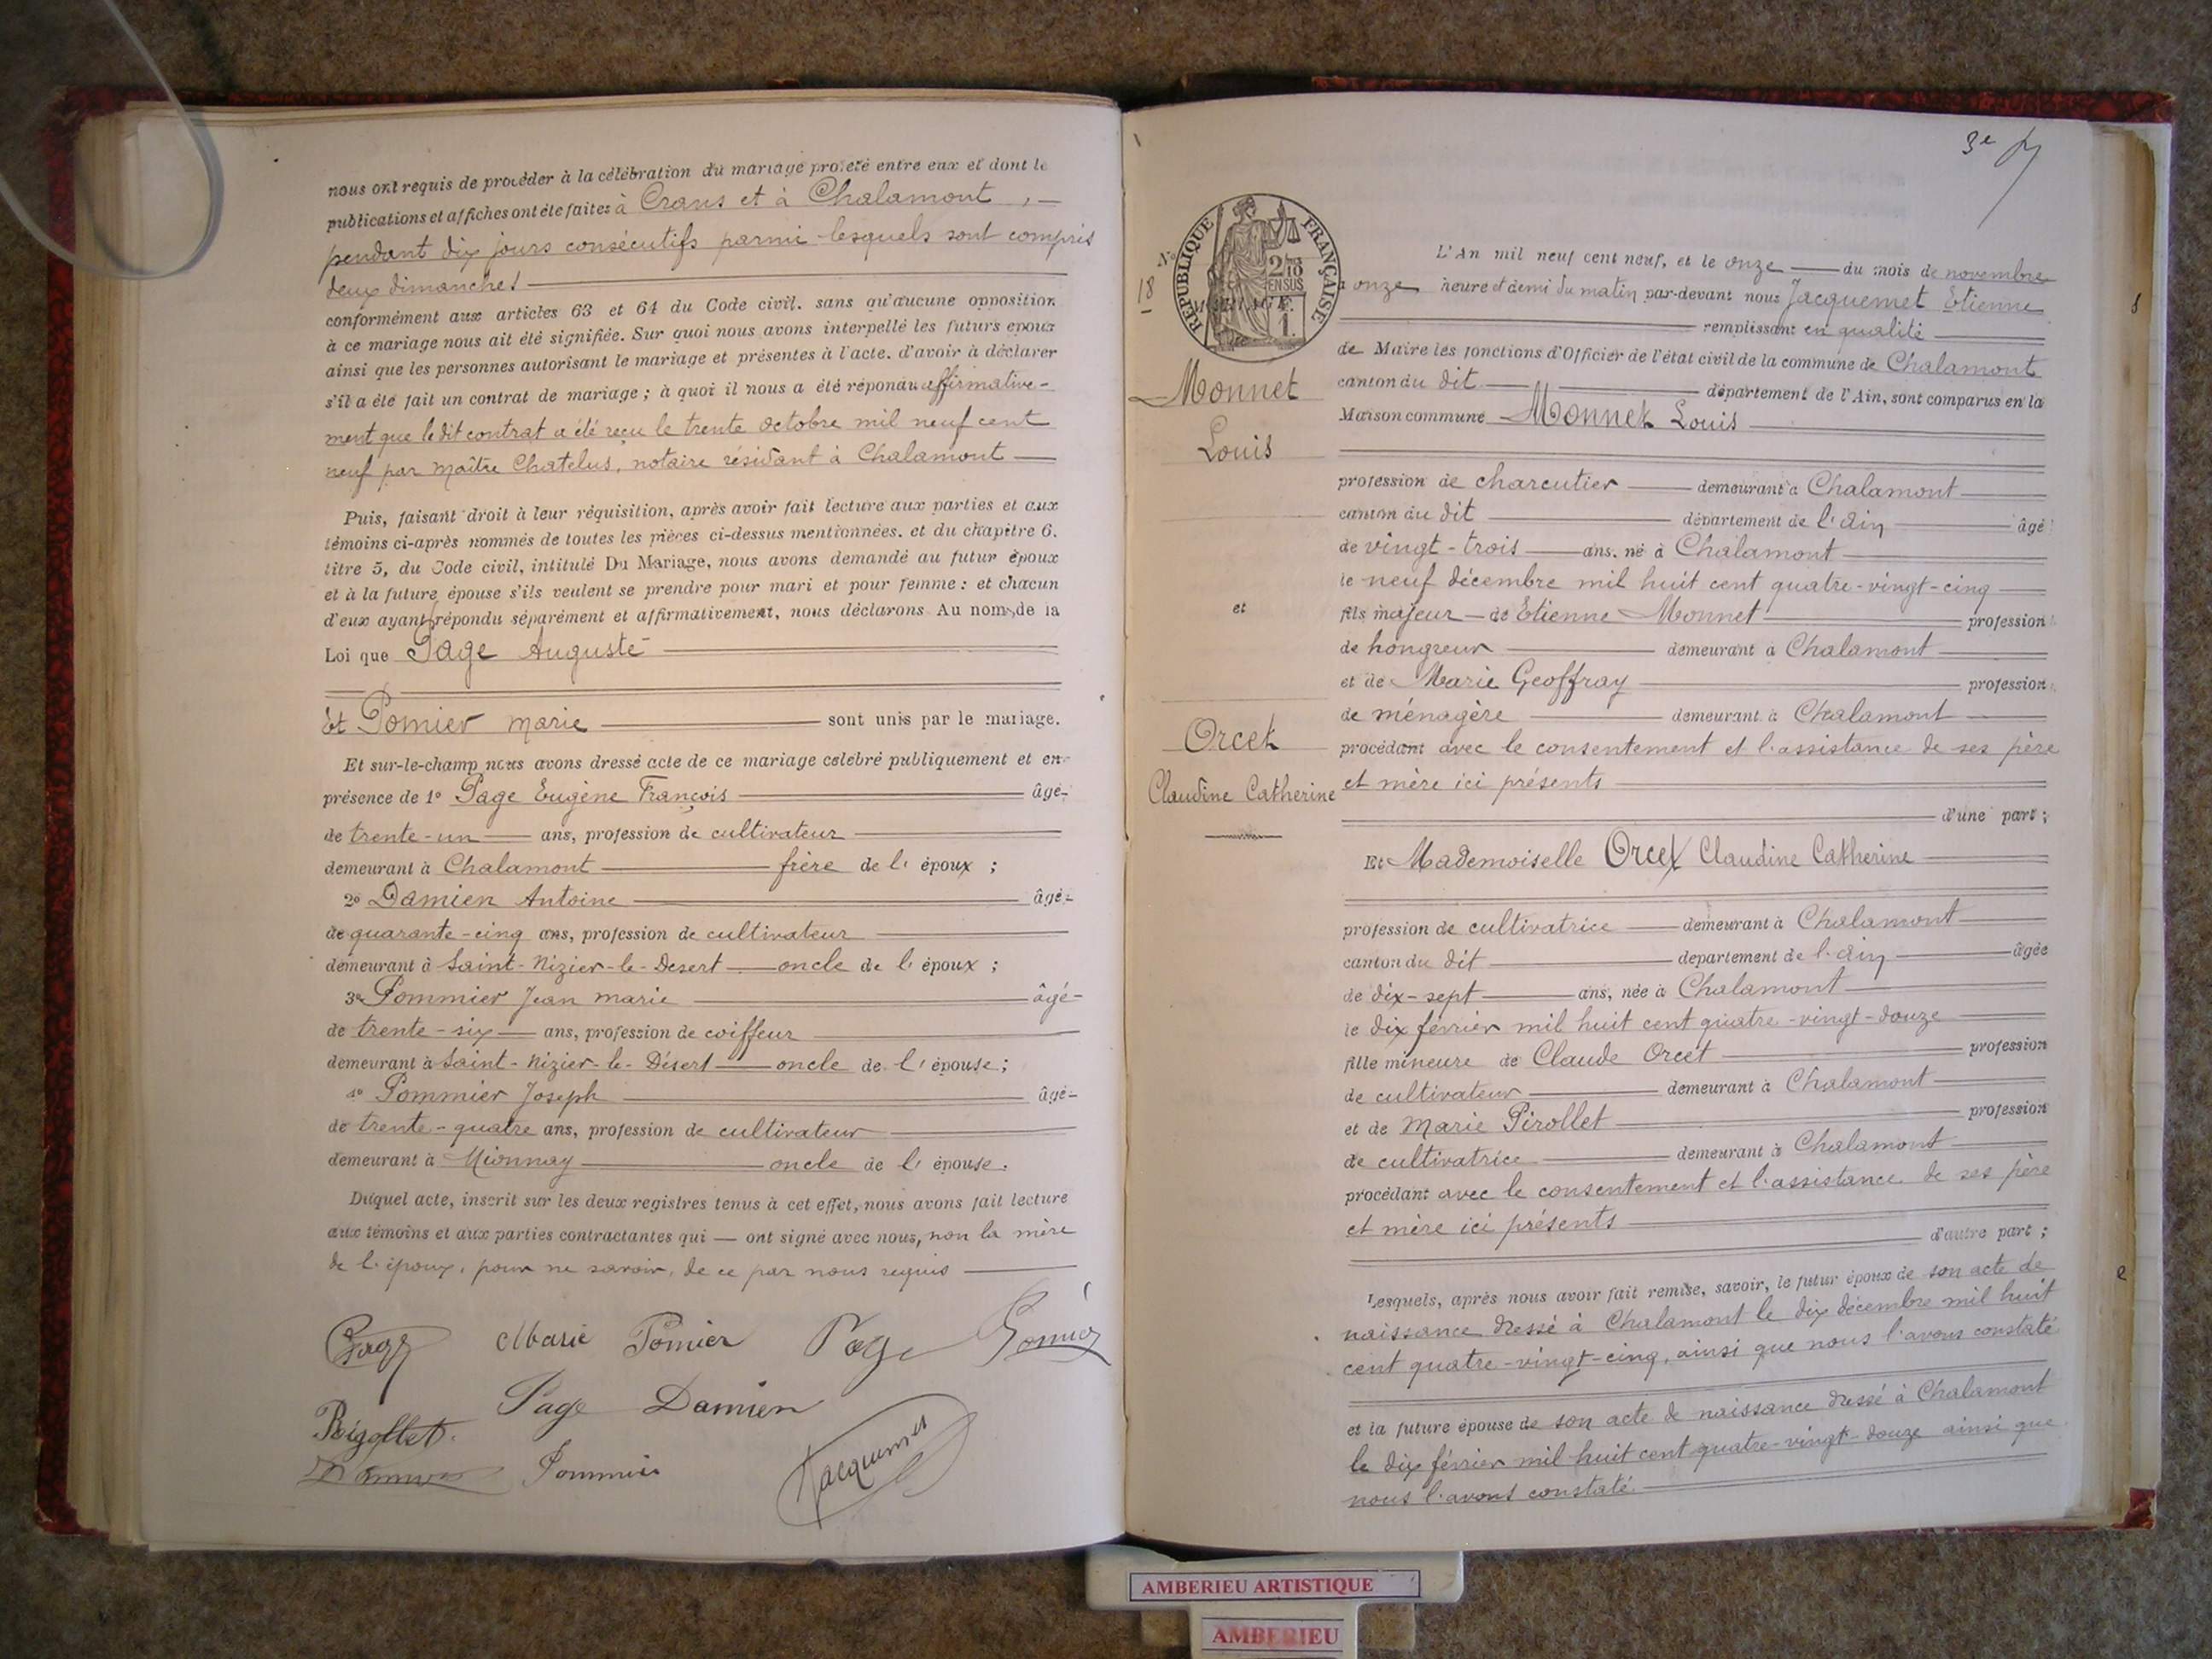 nous ont requis de procéder à la célébration du mariage projeté entre eux et dont le
publications et affiches ont été faites à Crans et à Chalamont, —
pendant dix jours consécutifs parmi lesquels sont compris
deux dimanches
conformément aux articles 63 et 64 du Code civil. sans qu'aucune opposition
à ce mariage nous ait été signifiée. Sur quoi nous avons interpellé les futurs époux
ainsi que les personnes autorisant le mariage et présentes à l'acte. d'avoir à déclarer
s'il a été fait un contrat de mariage ; à quoi il nous a été répondu affirmative-
ment que le dit contrat a été reçu le trente octobre mil neuf cent
neuf par Maître Chatelus, notaire résidant à Chalamont
Puis, faisant droit à leur réquisition, après avoir fait lecture aux parties et aux
témoins ci-après nommés de toutes les pièces ci-dessus mentionnées. et du chapitre 6.
titre 5, du Code civil, intitulé Du Mariage, nous avons demandé au futur époux
et à la future épouse s'ils veulent se prendre pour mari et pour femme : et chacun
d'eux ayant répondu séparément et affirmativement, nous déclarons Au nom de la
Loi que Page Auguste
Et Pomier Marie sont unis par le mariage.
Et sur-le-champ nous avons dressé acte de ce mariage célébré publiquement et en
présence de 1° Page Eugène François âgé
de trente-un ans, profession de cultivateur
demeurant à Chalamont frère de l'époux ;
2° Damien Antoine âgé
de quarante-cinq ans, profession de cultivateur
demeurant à Saint-Nizier-le-Desert oncle de l'époux ;
3° Pommier Jean Marie âgé
de trente-six ans, profession de coiffeur
demeurant à Saint-Nizier-le-Désert oncle de l'épouse ;
4° Pommier Joseph âgé
de trente-quatre ans, profession de cultivateur
demeurant à Mionnay oncle de l'épouse.
Duquel acte, inscrit sur les deux registres tenus à cet effet, nous avons fait lecture
aux témoins et aux parties contractantes qui — ont signé avec nous, non la mère
de l'époux, pour ne savoir, de ce par nous requis
Page Marie Pomier Page Pomier
Page Damien
Rigollet
Pommier Jacquemet
3e
RÉPUBLIQUE FRANÇAISE
2/10 EN SUS
1.
N°
18
MARIAGE
Monnet
Louis
et
Orcet
Claudine Catherine
L'An mil neuf cent neuf, et le onze du mois de novembre
à onze heure et demi du matin par-devant nous Jacquemet Etienne
remplissant en qualité
de Maire les fonctions d'Officier de l'état civil de la commune de Chalamont
canton du dit département de l'Ain, sont comparus en la
Maison commune Monnet Louis
profession de charcutier demeurant à Chalamont
canton du dit département de l'Ain âgé
de vingt-trois ans. né à Chalamont
le neuf décembre mil huit cent quatre-vingt-cinq
fils majeur de Etienne Monnet profession
de hongreur demeurant à Chalamont
et de Marie Geoffray profession
de ménagère demeurant à Chalamont
procédant avec le consentement et l'assistance de ses père
et mère ici présents
d'une part ;
Et Mademoiselle Orcet Claudine Catherine
profession de cultivatrice demeurant à Chalamont
canton du dit département de l'Ain âgée
de dix-sept ans, née à Chalamont
le dix février mil huit cent quatre-vingt-douze
fille mineure de Claude Orcet profession
de cultivateur demeurant à Chalamont
et de Marie Pirollet profession
de cultivatrice demeurant à Chalamont
procédant avec le consentement et l'assistance de ses père
et mère ici présents
d'autre part ;
Lesquels, après nous avoir fait remise, savoir, le futur époux de son acte de
naissance dressé à Chalamont le dix décembre mil huit
cent quatre-vingt-cinq, ainsi que nous l'avons constaté
et la future épouse de son acte de naissance dressé à Chalamont
le dix février mil huit cent quatre-vingt-douze ainsi que
nous l'avons constaté.
AMBERIEU ARTISTIQUE
AMBERIEU